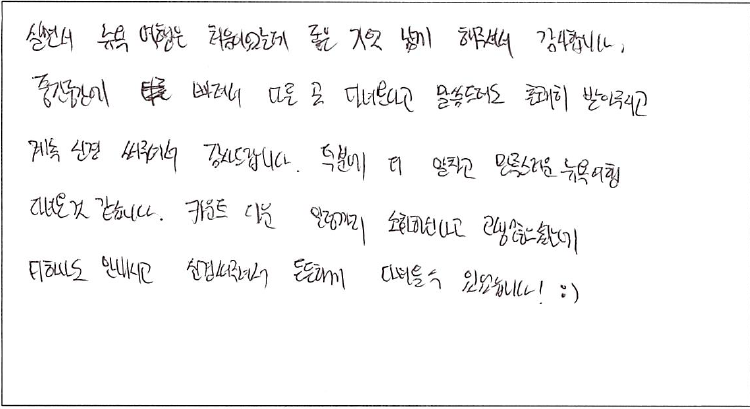 살면서 뉴욕 여행은 처음이었는데 좋은 지역 넓게 해주셔서 감사합니다.
중간중간에 빠져서 다른 곳 다녀온다고 말씀드려도 흔쾌히 받아주시고
계속 신경 써주셔서 감사드립니다. 덕분에 더 알차고 만족스러운 뉴욕여행
다녀온 것 같습니다. 투어 일정까지 소화하신다고 고생하셨는데
티하나도 안내시고 신경써주셔서 든든하게 다녀올 수 있었습니다! :)